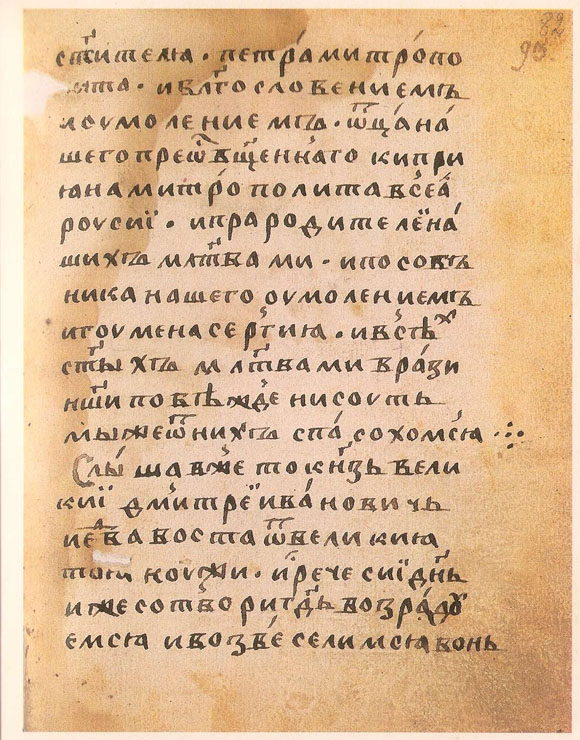 82
93
ст҃ителѧ · петра́ митропо
лита · и бл҃гословениемъ
и оумолениемъ · ѿц҃а на́
шего преѡ҃сщ҃еннаго кипри
ꙗна митрополита всеа̀
роусиї · и прародителеи на́
шихъ мл҃твами · и пособъ
ника нашего оумолениемъ
игоумена сергиꙗ · и всѣх
ст҃ыхъ мл҃твами врази
нш҃и побѣждени соуть
мы же ѿ нихъ спасохомсѧ ⁘
Слышав же то кн҃зь вели
киї дмитреї ивановичь
и воста ѿ великиꙗ
тоꙗ ноужи · и рече сиї дн҃ь
иже сотвори г҃ь возрадꙋ
емсѧ и возвеселимсѧ вонь